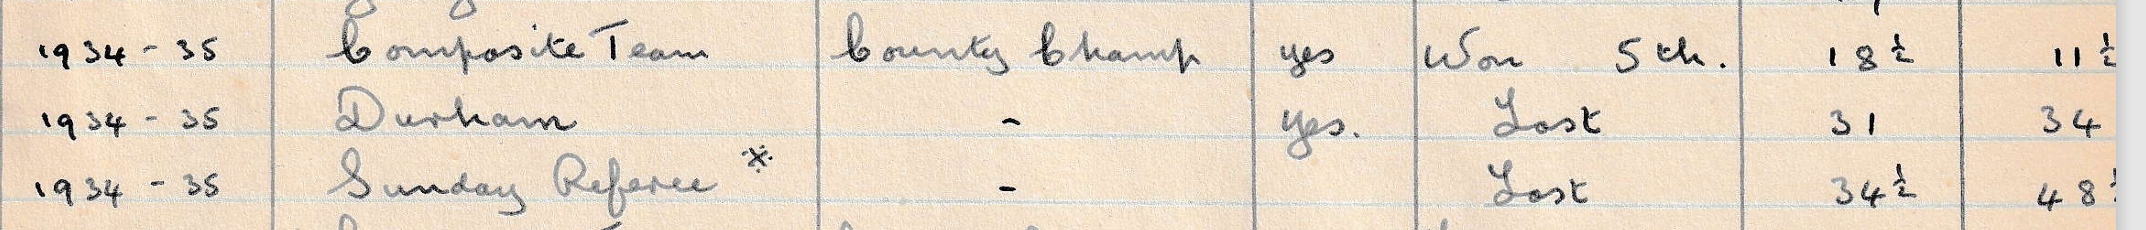 1934 - 35 Composite Team County Champ yes Won 5th. 18½ 11½
1934 - 35 Durham - yes. Lost 31 34
1934 - 35 Sunday Referee * - Lost 34½ 48½